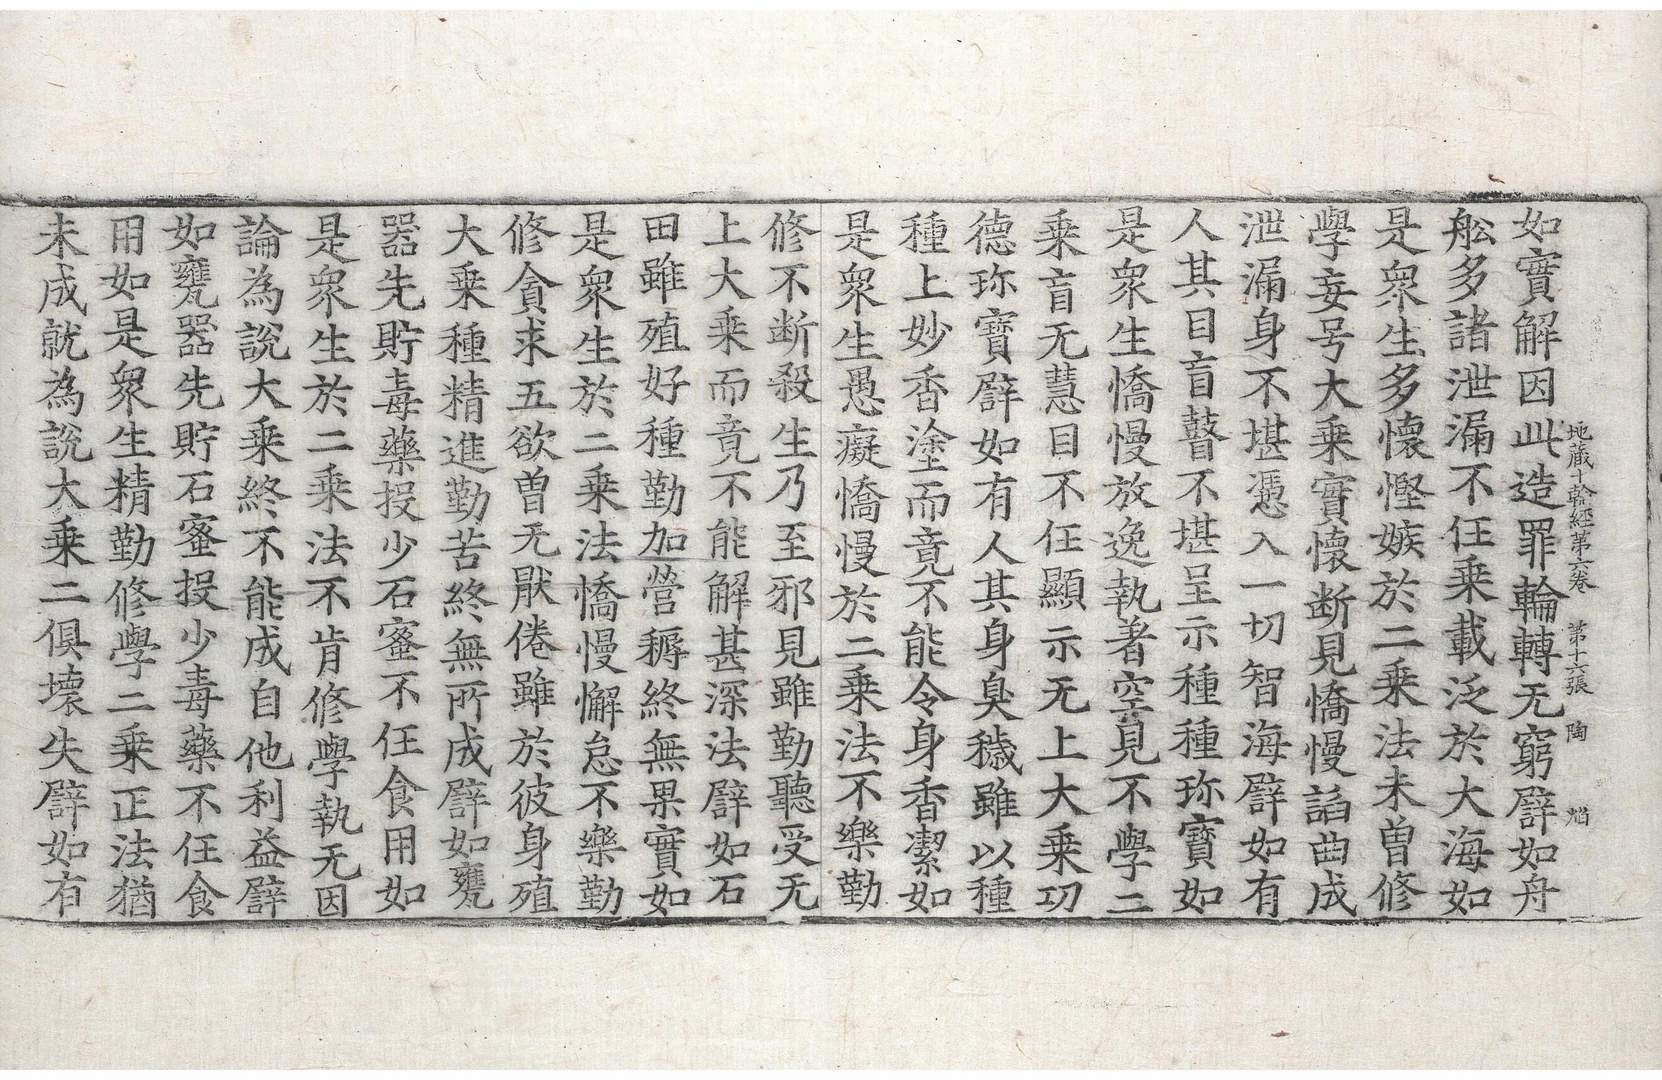 地藏十輪經第六卷　第十六張　陶
如實解因此造罪輪轉无窮譬如舟
舩多諸泄漏不任乘載泛於大海如
是衆生多懷慳嫉於二乘法未曾修
學妄号大乘實懷断見憍慢諂曲成
泄漏身不堪憑入一切智海譬如有
人其目盲瞽不堪呈示種種珎寶如
是衆生憍慢放逸執著空見不學二
乘盲无慧目不任顯示无上大乘功
德珎寶譬如有人其身臭穢雖以種
種上妙香塗而竟不能令身香潔如
是衆生愚癡憍慢於二乘法不樂勤
修不断殺生乃至邪見雖勤聽受无
上大乘而竟不能解甚深法譬如石
田雖殖好種勤加營耨終無果實如
是衆生於二乘法憍慢懈怠不樂勤
修貪求五欲曾无厭倦雖於彼身殖
大乘種精進勤苦終無所成譬如甕
器先貯毒藥投少石蜜不任食用如
是衆生於二乘法不肯修學執无因
論為說大乘終不能成自他利益譬
如甕器先貯石蜜投少毒藥不任食
用如是衆生精勤修學二乘正法猶
未成就為說大乘二俱壞失譬如有